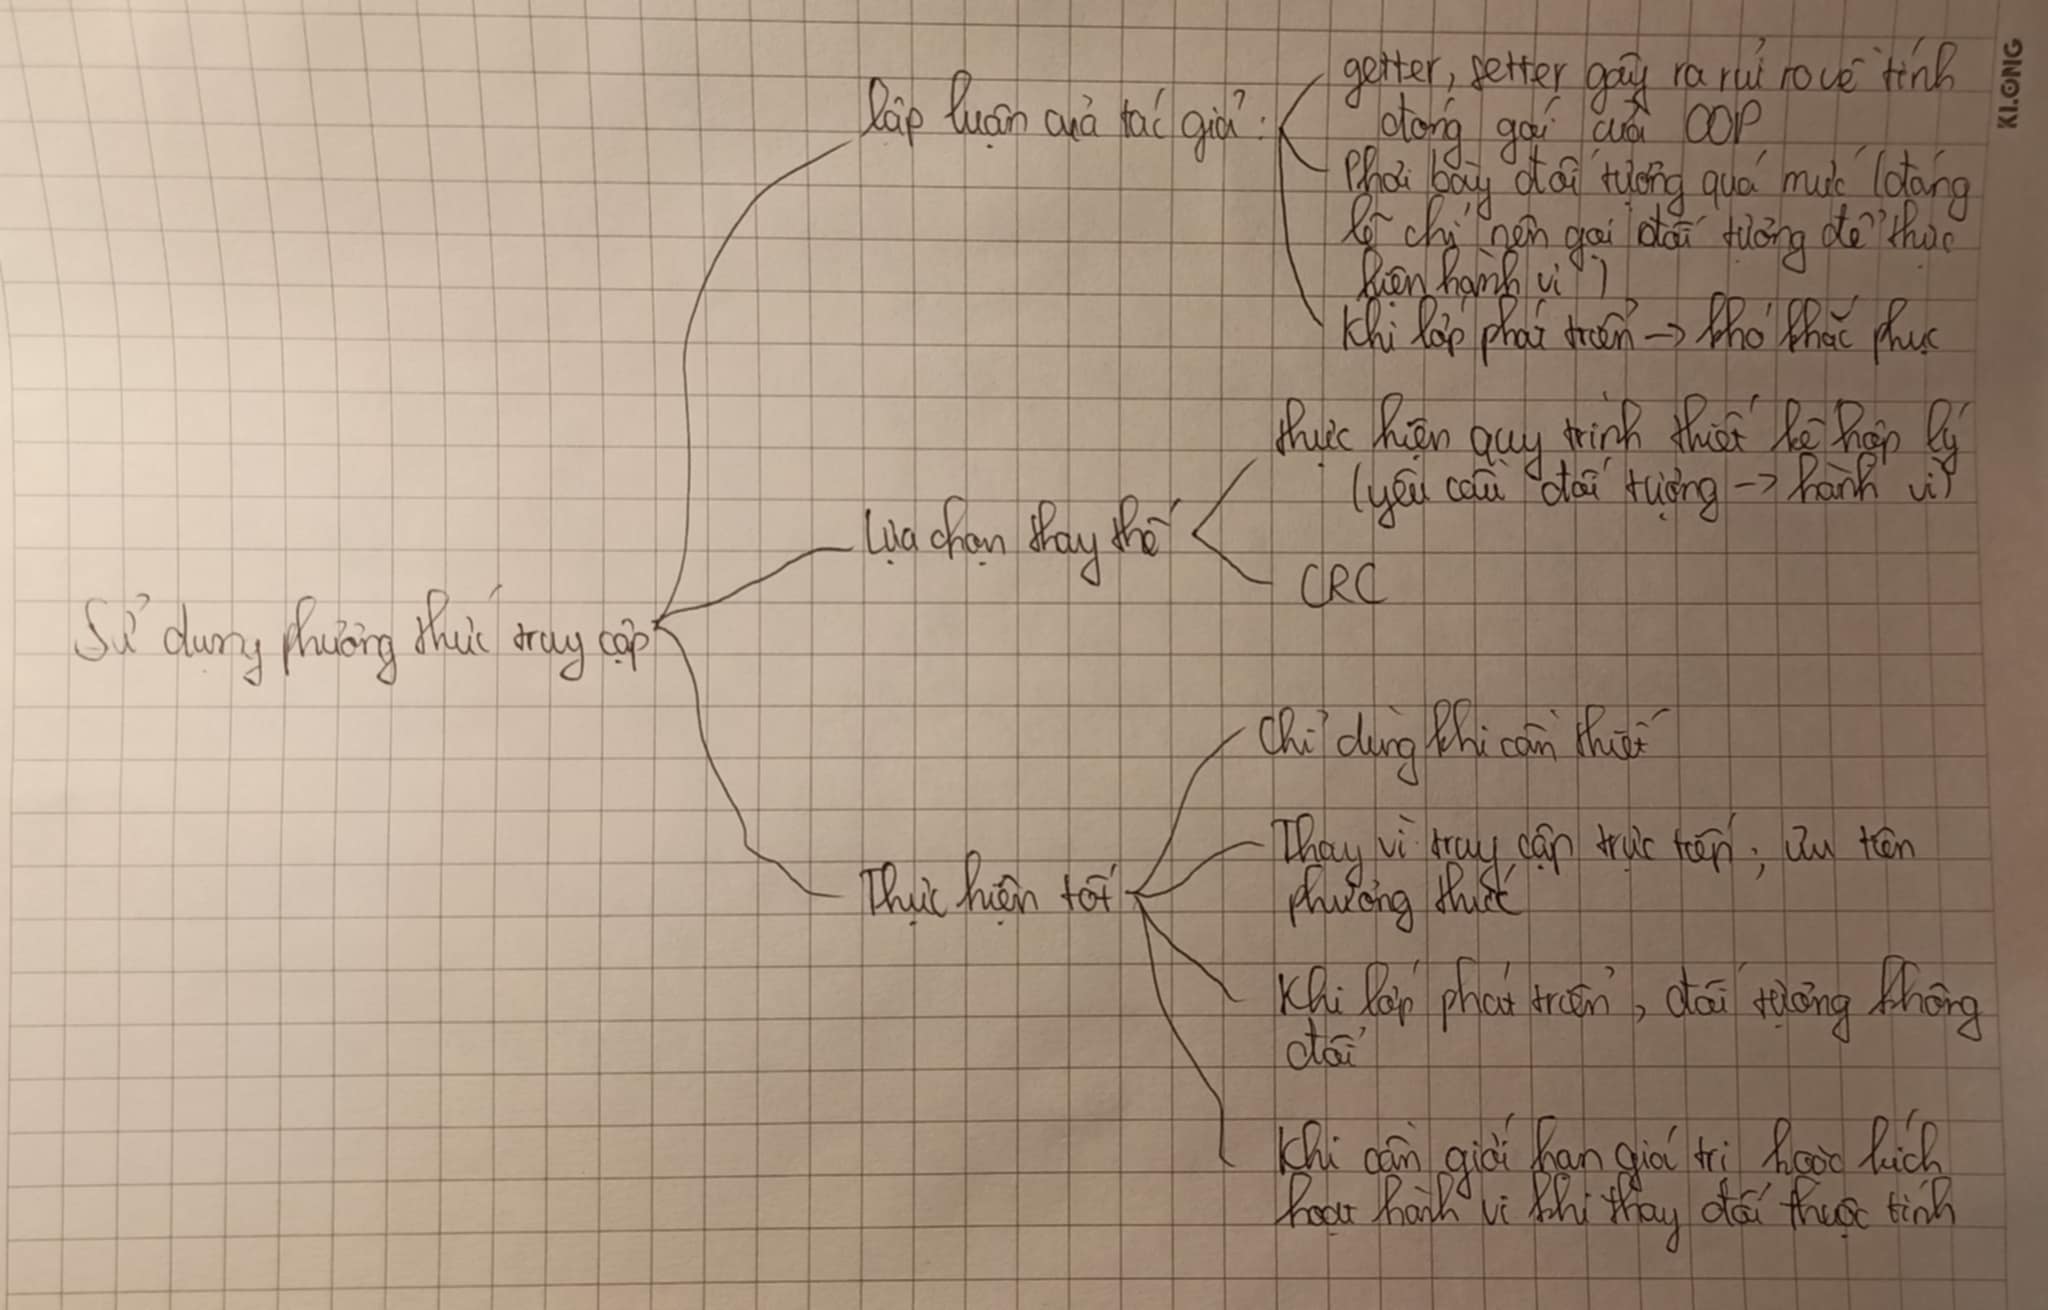 KLONG
Lập luận của tác giả :
getter, setter gây ra rủi ro về tính
đóng gói của OOP
Phơi bày đối tượng quá mức (đáng
lẽ chỉ nên gọi đối tượng để thực
hiện hành vi)
Khi lớp phát triển -> khó khắc phục
Sử dụng phương thức truy cập
Lựa chọn thay thế
thực hiện quy trình thiết kế hợp lý
(yêu cầu đối tượng -> hành vi)
CRC
Thực hiện tốt
Chỉ dùng khi cần thiết
Thay vì truy cập trực tiếp, ưu tiên
phương thức
Khi lớp phát triển, đối tượng không
đổi
Khi cần giới hạn giá trị hoặc kích
hoạt hành vi khi thay đổi thuộc tính